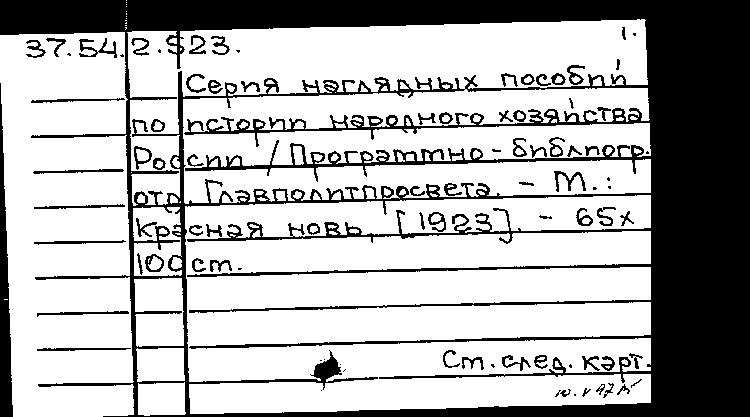 1.
37.54.2.S23.
Серия наглядных пособий
по истории народного хозяйства
России / Программно-библиогр.
отд. Главполитпросвета. - М.:
Красная новь, [1923]. - 65х
100 см.
См. след. карт.